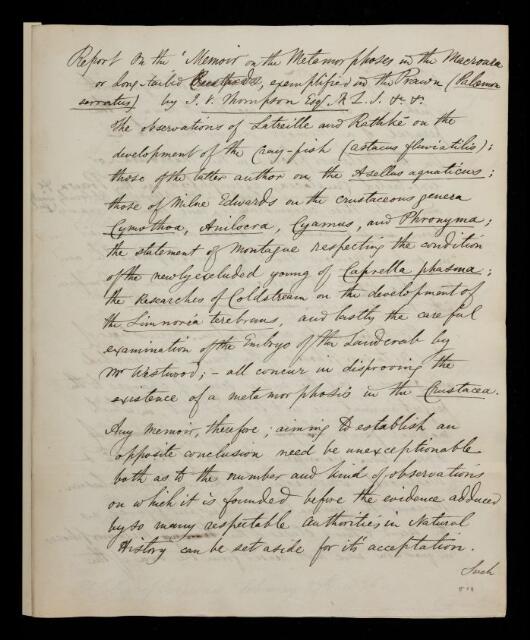 Report on the "Memoir on the Metamorphoses in the Macroura
or long-tailed Crustacea, exemplified in the Prawn (Palæmon
serratus) by J. V. Thompson Esq. F. L. S. &c. &c.
The observations of Latreille and Rathké on the
development of the Cray-fish (astacus fluviatilis);
those of the latter author on the Asellus aquaticus;
those of Milne Edwards on the crustaceous genera
Cymothoa, Anilocra, Cyamus, and Phronyma;
the statement of Montague respecting the condition
of the newly excluded young of Caprella phasma;
the researches of Coldstream on the development of
the Limnoria terebrans, and lastly the careful
examination of the Embryo of the Landcrab by
Mr Westwood; - all concur in disproving the
existence of a metamorphosis in the Crustacea.
Any memoir, therefore, aiming to establish an
opposite conclusion need be unexceptionable
both as to the number and kind of observations
on which it is founded before the evidence adduced
by so many respectable authorities in Natural
History can be set aside for its acceptation.
Such